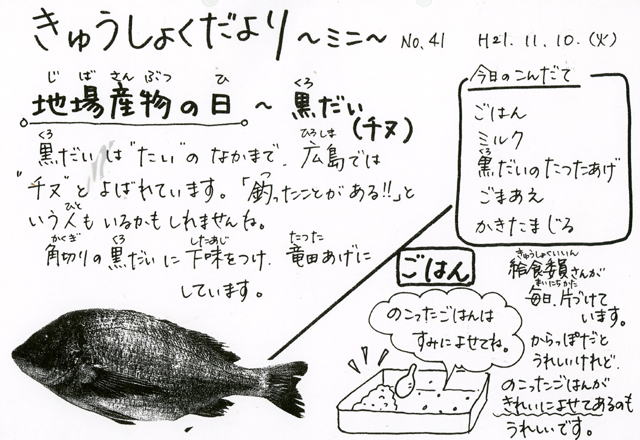 きゅうしょくだより ～ミニ～ No.41 H21.11.10.(火)
じばさんぶつ ひ くろ
地場産物の日 ～ 黒だい
(チヌ)
くろ ひろしま
黒だいは"たい"のなかまで、広島では
"チヌ"とよばれています。「釣ったことがある!!」と
ひと
いう人もいるかもしれませんね。
かくぎ くろ したあじ たつた
角切りの黒だいに下味をつけ、竜田あげに
しています。
今日のこんだて
ごはん
ミルク
くろ
黒だいのたつたあげ
ごまあえ
かきたまじる
ごはん
のこったごはんは
すみによせてね。
きゅうしょくいいん
給食委員さんが
まいにちかた
毎日、片づけて
います。
からっぽだと
うれしいけれど、
のこったごはんが
きれいによせてあるのも
うれしいです。